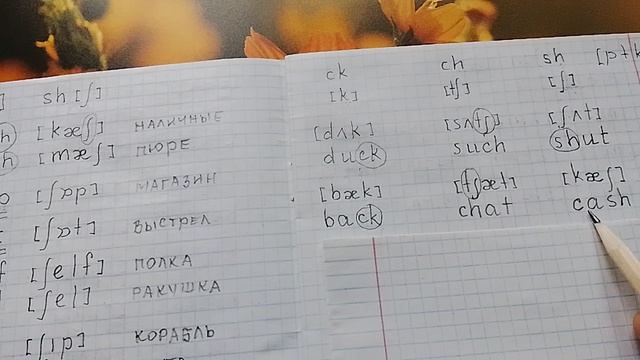 sh [ʃ]
[kæʃ] НАЛИЧНЫЕ
[mæʃ] ПЮРЕ
[ʃɒp] МАГАЗИН
[ʃɒt] ВЫСТРЕЛ
[ʃelf] ПОЛКА
[ʃel] РАКУШКА
[ʃıp] КОРАБЛЬ
ck ch sh
[k] [tʃ] [ʃ]
[dʌk] [sʌtʃ] [ʃʌt]
duck such shut
[bæk] [tʃæt] [kæʃ]
back chat cash